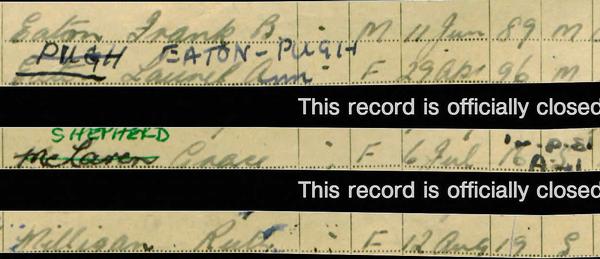 Eaton Frank B. M 11 Jun 89 M
PUGH EATON-PUGH
Laurel Ann F 29 Apr 96 M
This record is officially closed
SHEPHERD
McLaren Grace F 6 Jul 16
This record is officially closed
Milligan Ruby F 12 Aug 19 S